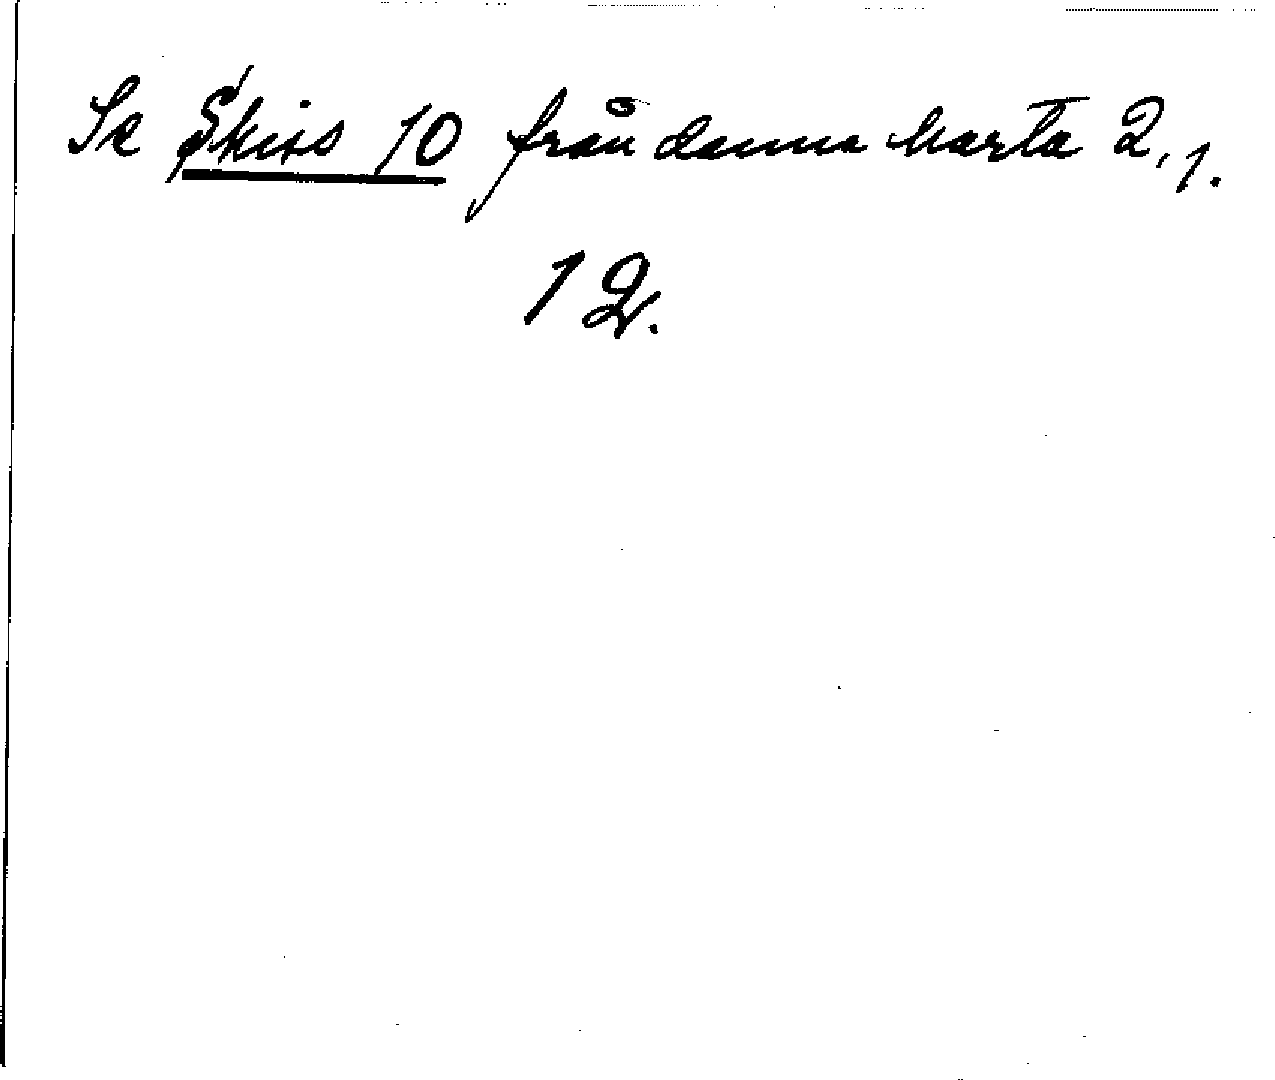 Se Skiss 10 från denna karta 2,1.
12.